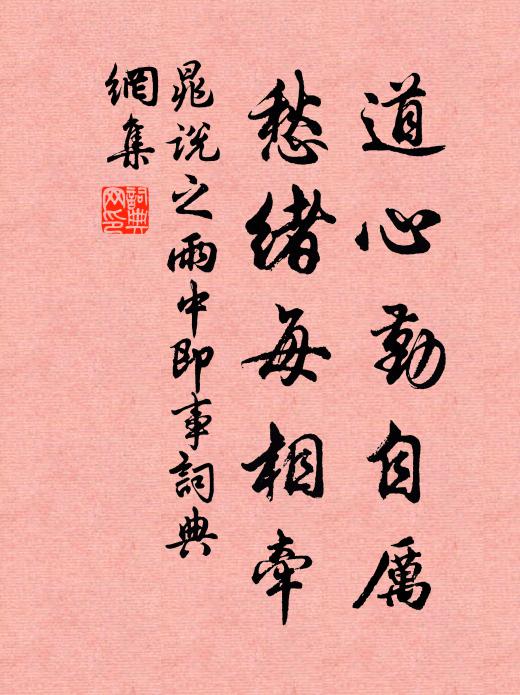 道心勤自厲
愁緒每相牽
晁說之雨中即事詞典
網集
詞典
網印